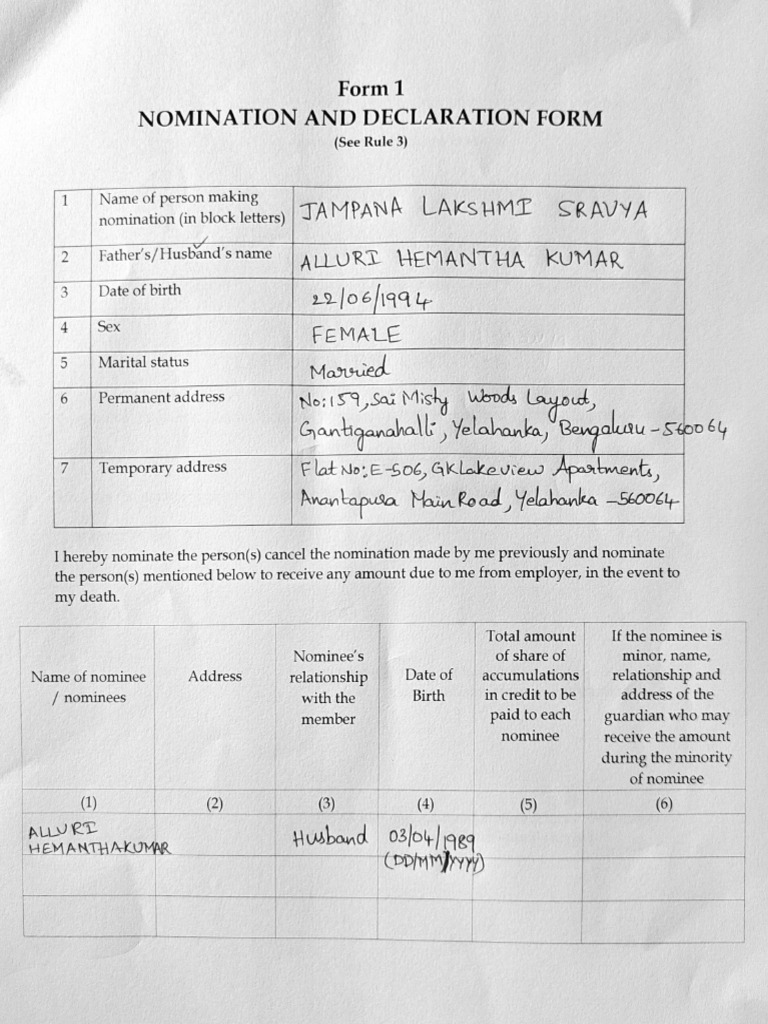 Form 1
NOMINATION AND DECLARATION FORM
(See Rule 3)
1 Name of person making nomination (in block letters) JAMPANA LAKSHMI SRAVYA
2 Father's/Husband's name ALLURI HEMANTHA KUMAR
3 Date of birth 22/06/1994
4 Sex FEMALE
5 Marital status Married
6 Permanent address No:159, Sai Misty Woods Layout,
Gantiganahalli, Yelahanka, Bengaluru - 560064
7 Temporary address Flat No: E-506, GK Lakeview Apartments,
Anantapura Main Road, Yelahanka - 560064
I hereby nominate the person(s) cancel the nomination made by me previously and nominate
the person(s) mentioned below to receive any amount due to me from employer, in the event to
my death.
Name of nominee
/ nominees
Address
Nominee's
relationship
with the
member
Date of
Birth
Total amount
of share of
accumulations
in credit to be
paid to each
nominee
If the nominee is
minor, name,
relationship and
address of the
guardian who may
receive the amount
during the minority
of nominee
(1) (2) (3) (4) (5) (6)
ALLURI
HEMANTHAKUMAR
Husband
03/04/1989
(DD/MM/YYYY)